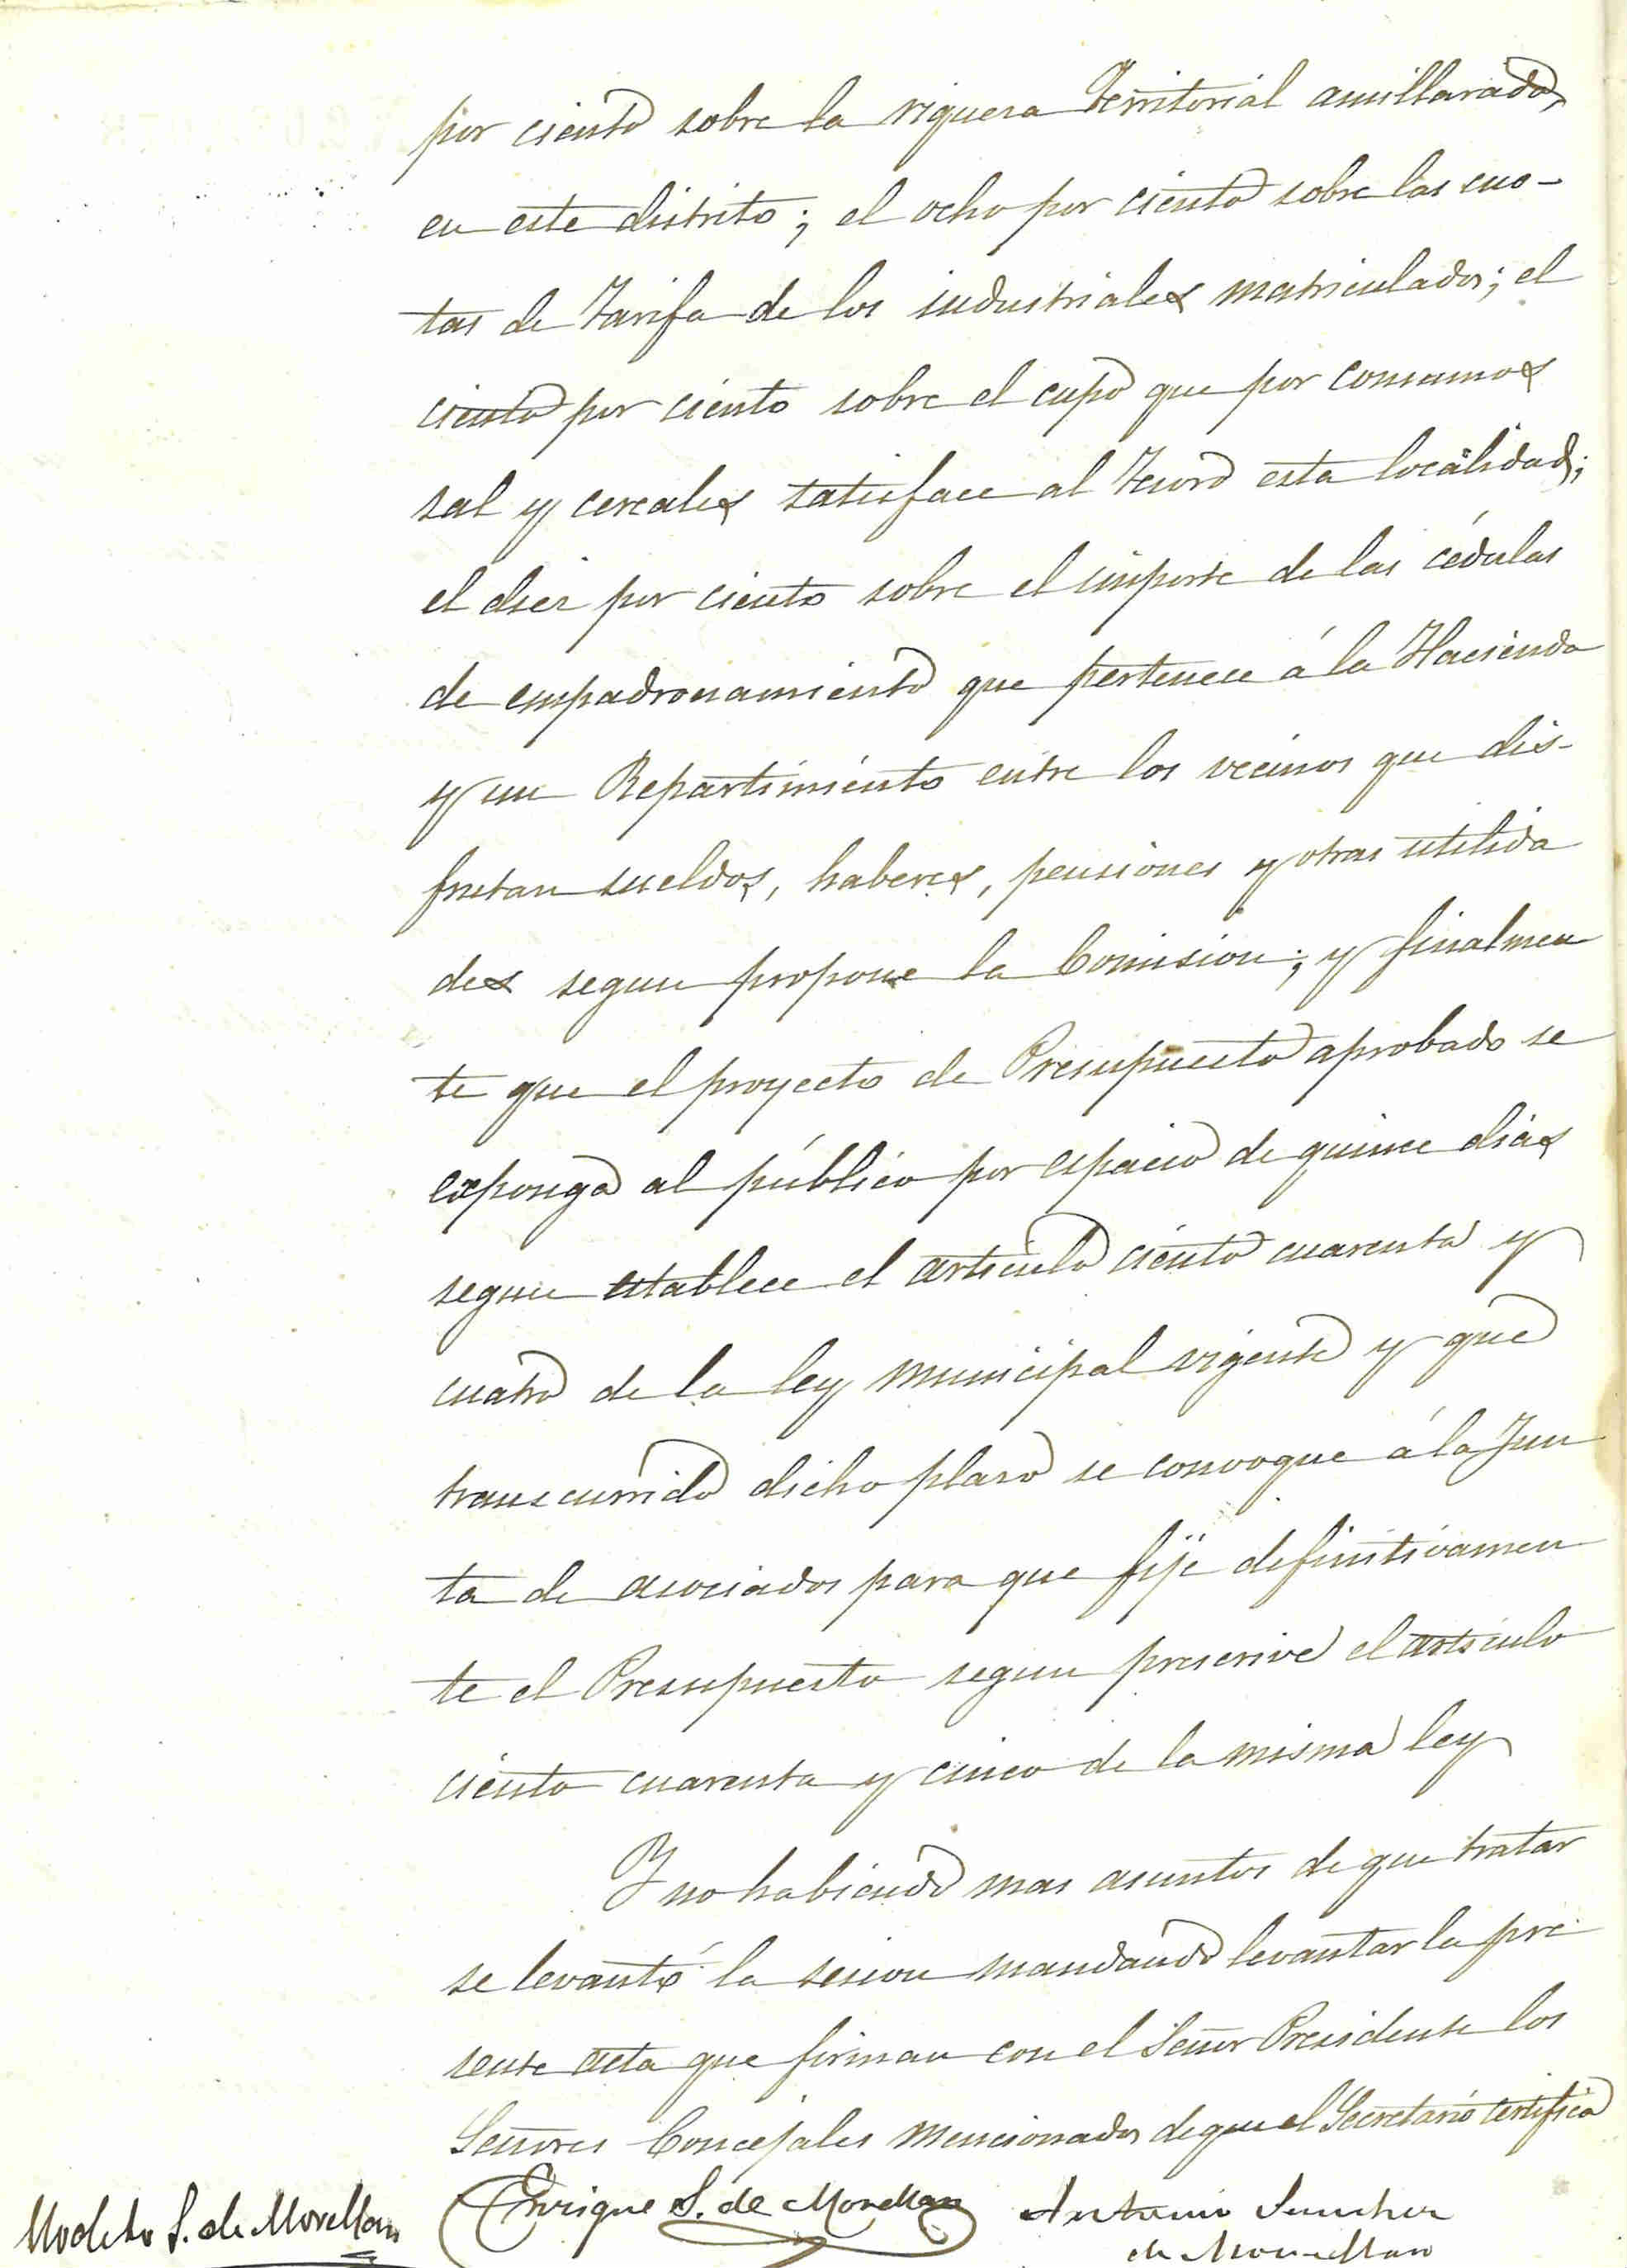 por ciento sobre la riqueza territorial amillarada,
en este distrito; el ocho por ciento sobre las cuo-
tas de Tarifa de los industriales matriculados; el
ciento por ciento sobre el cupo que por consumos
sal y cereales satisface al Tesoro esta localidad;
el diez por ciento sobre el importe de las cédulas
de empadronamiento que pertenece á la Hacienda
y un Repartimiento entre los vecinos que dis-
frutan sueldos, haberes, pensiones y otras utilida
des segun propone la Comision; y finalmen
te que el proyecto de Presupuesto aprobado se
exponga al público por espacio de quince dias
segun establece el articulo ciento cuarenta y
cuatro de la ley municipal vigente y que
transcurrido dicho plazo se convoque á la Jun
ta de asociados para que fije definitivamen
te el Presupuesto segun prescrive el articulo
ciento cuarenta y cinco de la misma ley
Y no habiendo mas asuntos de que tratar
se levantó la sesion mandando levantar la pre-
sente acta que firman con el Señor Presidente los
Señores Concejales mencionados de que el Secretario certifica
Modesto S. de Movellan Enrique S. de Movellan Antonio Sanchez
de Movellan